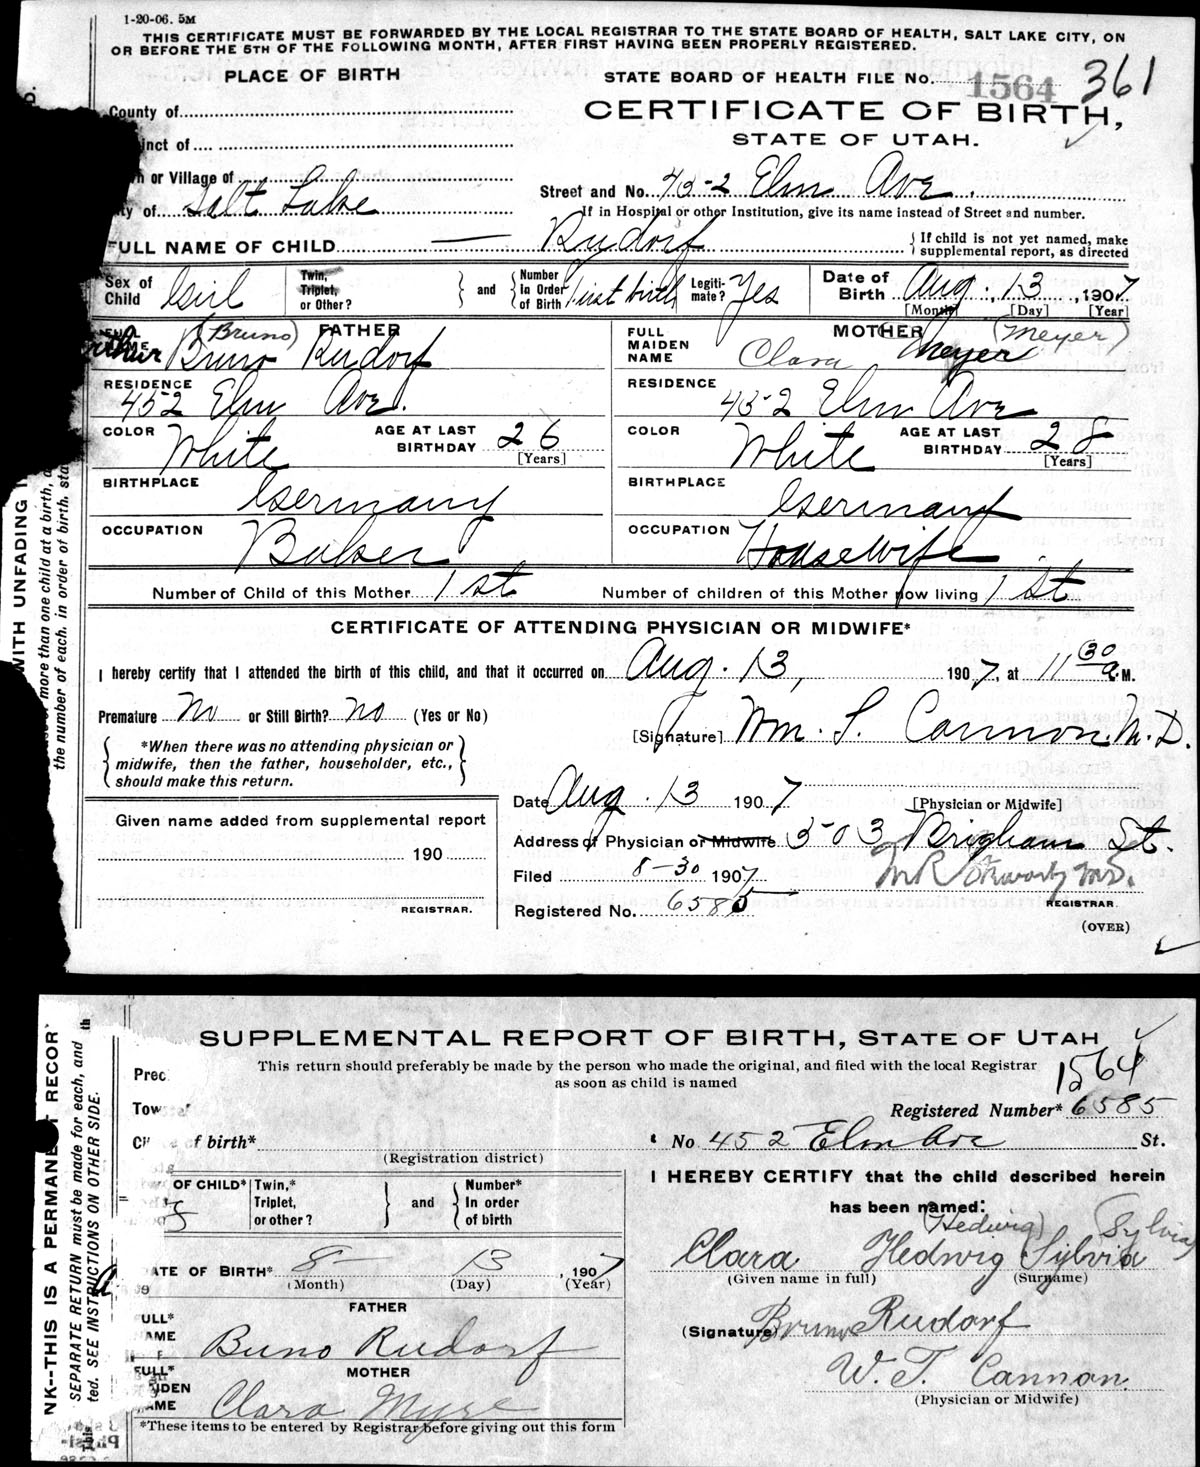 1-20-06. 5M
THIS CERTIFICATE MUST BE FORWARDED BY THE LOCAL REGISTRAR TO THE STATE BOARD OF HEALTH, SALT LAKE CITY, ON
OR BEFORE THE 5TH OF THE FOLLOWING MONTH, AFTER FIRST HAVING BEEN PROPERLY REGISTERED.
PLACE OF BIRTH
STATE BOARD OF HEALTH FILE No. 1564 361
County of
CERTIFICATE OF BIRTH,
inct of
STATE OF UTAH.
or Village of
Street and No. 452 Elm Ave.
of Salt Lake
If in Hospital or other Institution, give its name instead of Street and number.
FULL NAME OF CHILD — Rudorf
{ If child is not yet named, make
supplemental report, as directed
Sex of Child Girl
Twin, Triplet, or Other?
and
Number In Order of Birth first birth
Legiti-mate? Yes
Date of Birth Aug. 13, 1907
[Month] [Day] [Year]
FATHER
FULL NAME Arthur Bruno Rudorf (Bruno)
MOTHER
FULL MAIDEN NAME Clara Meyer (Meyer)
RESIDENCE 452 Elm Ave.
RESIDENCE 452 Elm Ave
COLOR White AGE AT LAST BIRTHDAY 26 [Years]
COLOR White AGE AT LAST BIRTHDAY 28 [Years]
BIRTHPLACE Germany
BIRTHPLACE Germany
OCCUPATION Baker
OCCUPATION Housewife
Number of Child of this Mother 1st Number of children of this Mother now living 1st
CERTIFICATE OF ATTENDING PHYSICIAN OR MIDWIFE*
I hereby certify that I attended the birth of this child, and that it occurred on Aug. 13, 1907, at 11 30 a.M.
Premature No or Still Birth? No (Yes or No)
[Signature] Wm. T. Cannon. M.D.
*When there was no attending physician or
midwife, then the father, householder, etc.,
should make this return.
Date Aug. 13 1907 [Physician or Midwife]
Given name added from supplemental report
Address of Physician or Midwife 503 Brigham St.
190
Filed 8-30 1907
REGISTRAR.
Registered No. 6585
REGISTRAR.
(OVER)
WITH UNFADING
more than one child at a birth, a
the number of each, in order of birth, sta
SUPPLEMENTAL REPORT OF BIRTH, STATE OF UTAH
This return should preferably be made by the person who made the original, and filed with the local Registrar
as soon as child is named
1564
Prec
Tow
Registered Number* 6585
of birth*
No 452 Elm Ave St.
(Registration district)
I HEREBY CERTIFY that the child described herein
has been named:
OF CHILD*
Twin,* Triplet, or other?
and
Number* In order of birth
(Hedwig) (Sylvia)
Clara Hedwig Sylvia
(Given name in full) (Surname)
DATE OF BIRTH* 8 13, 1907
(Month) (Day) (Year)
FATHER
FULL* NAME Buno Rudorf
(Signature) Bruno Rudorf
W. T. Cannon.
(Physician or Midwife)
MOTHER
FULL* MAIDEN NAME Clara Myre
*These items to be entered by Registrar before giving out this form
NK--THIS IS A PERMANENT RECOR
SEPARATE RETURN must be made for each, and
ted. SEE INSTRUCTIONS ON OTHER SIDE.